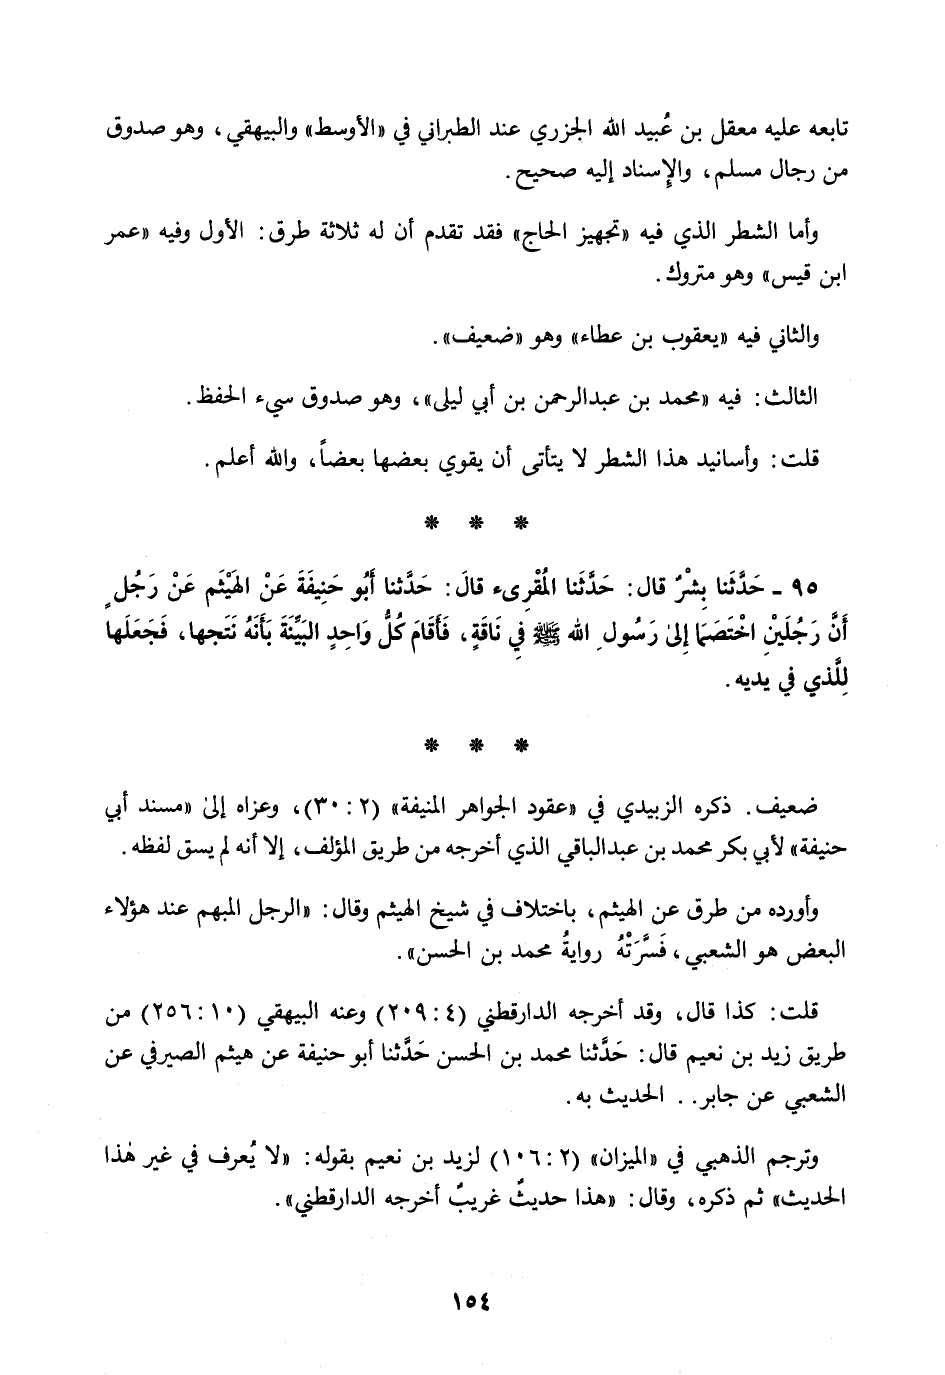 تابعه عليه معقل بن عُبيد الله الجزري عند الطبراني في «الأوسط» والبيهقي، وهو صدوق
من رجال مسلم، والإسناد إليه صحيح.
وأما الشطر الذي فيه «تجهيز الحاج» فقد تقدم أن له ثلاثة طرق: الأول وفيه «عمر
ابن قيس» وهو متروك.
والثاني فيه «يعقوب بن عطاء» وهو «ضعيف».
الثالث: فيه «محمد بن عبدالرحمن بن أبي ليلى»، وهو صدوق سيء الحفظ.
قلت: وأسانيد هذا الشطر لا يتأتى أن يقوي بعضها بعضاً، والله أعلم.
* * *
٩٥ ـ حَدَّثَنا بِشْرٌ قال: حَدَّثَنا المُقْرِىء قالَ: حَدَّثنا أَبُو حَنِيفَةَ عَنْ الهَيْثَم عَنْ رَجُلٍ
أَنَّ رَجُلَيْنِ اخْتَصَمَا إِلىٰ رَسُولِ الله ﷺ فِي نَاقَةٍ، فَأَقَامَ كُلُّ وَاحِدٍ البَيِّنَةَ بَأَنَهُ نَتَجها، فَجَعَلَها
لِلَّذي في يديه.
* * *
ضعيف. ذكره الزبيدي في «عقود الجواهر المنيفة» (٢: ٣٠)، وعزاه إلىٰ «مسند أبي
حنيفة» لأبي بكر محمد بن عبدالباقي الذي أخرجه من طريق المؤلف، إلا أنه لم يسق لفظه.
وأورده من طرق عن الهيثم، باختلاف في شيخ الهيثم وقال: «الرجل المبهم عند هؤلاء
البعض هو الشعبي، فَسَّرَتْهُ روايةُ محمد بن الحسن».
قلت: كذا قال، وقد أخرجه الدارقطني (٤: ٢٠٩) وعنه البيهقي (١٠: ٢٥٦) من
طريق زيد بن نعيم قال: حَدَّثنا محمد بن الحسن حَدَّثنا أبو حنيفة عن هيثم الصيرفي عن
الشعبي عن جابر. . الحديث به.
وترجم الذهبي في «الميزان» (٢: ١٠٦) لزيد بن نعيم بقوله: «لا يُعرف في غير هٰذا
الحديث» ثم ذكره، وقال: «هذا حديثٌ غريبٌ أخرجه الدارقطني».
١٥٤